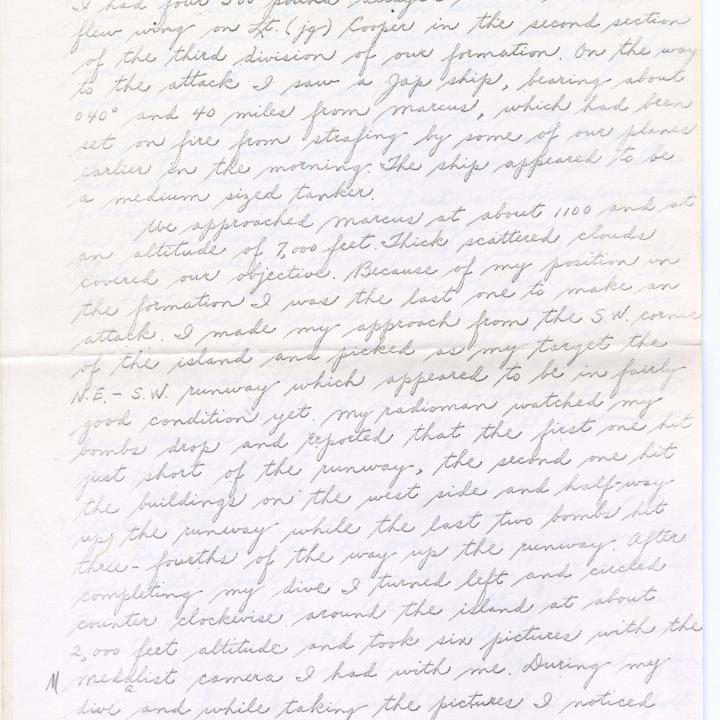 I had four 500 pound
flew wing on Lt. (jg) Cooper in the second section
of the third division of our formation. On the way
to the attack I saw a Jap ship, bearing about
040° and 40 miles from Marcus, which had been
set on fire from strafing by some of our planes
earlier in the morning. The ship appeared to be
a medium sized tanker.
We approached Marcus at about 1100 and at
an altitude of 7,000 feet. Thick scattered clouds
covered our objective. Because of my position in
the formation I was the last one to make an
attack. I made my approach from the S.W. corner
of the island and picked as my target the
N.E. - S.W. runway which appeared to be in fairly
good condition yet. My radioman watched my
bombs drop and reported that the first one hit
just short of the runway, the second one hit
the buildings on the west side and half-way
up the runway while the last two bombs hit
three-fourths of the way up the runway. After
completing my dive I turned left and circled
counter clockwise around the island at about
2,000 feet altitude and took six pictures with the
M medalist camera I had with me. During my
dive and while taking the pictures I noticed